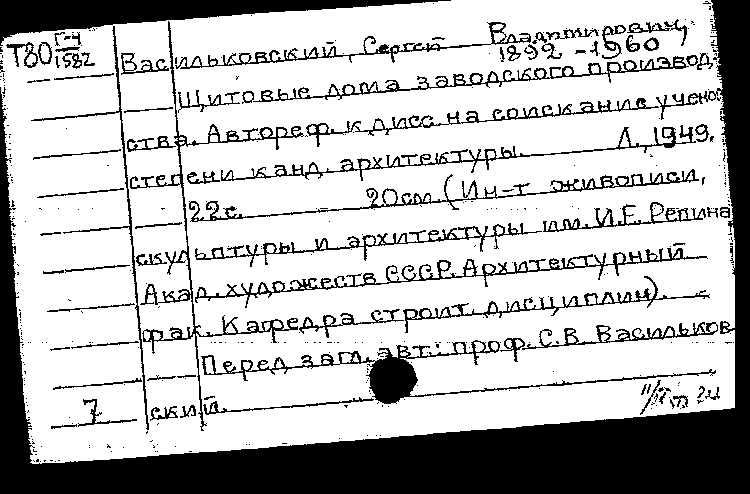 Т80 Г-4
1582
Васильковский, Сергей Владимирович,
1892 - 1960
Щитовые дома заводского производ-
ства. Автореф. к дисс. на соискание учено
степени канд. архитектуры. Л., 1949.
22с. 20см. (Ин-т живописи,
скульптуры и архитектуры им. И.Е. Репина
Акад. художеств СССР. Архитектурный
фак. Кафедра строит. дисциплин). -
Перед загл. авт.: проф. С.В. Васильков
7 ский.